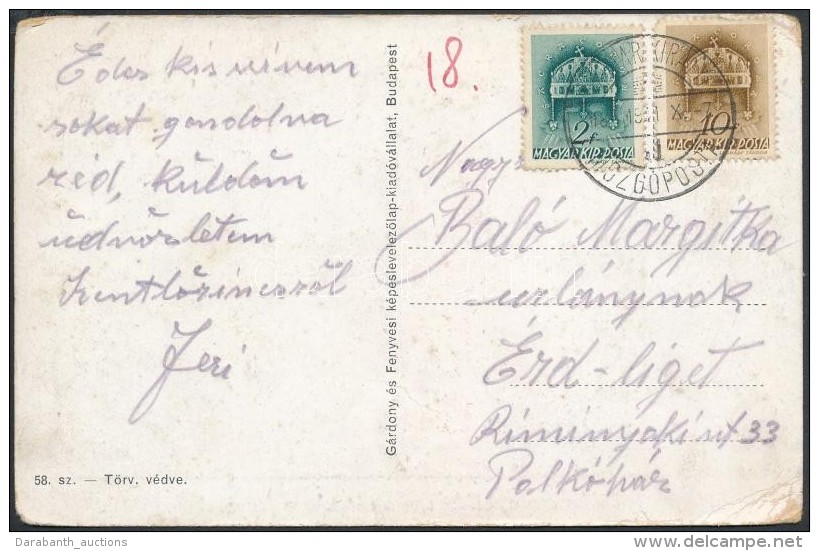 Édes kis
sokat gondolva
réd, küldöm
üdvözletem
Szentlőrinczről
Jeri
58. sz. — Törv. védve.
Gárdony és Fenyvesi képéslevelezőlap-kiadóvállalat, Budapest
18.
2f
MAGYAR KIR. POSTA
10
MAGYAR KIR. POSTA
MOZGÓPOSTA
Baló Margitka
urlánynak
Érd-liget
33
Darabanth_auctions
delcampe.net